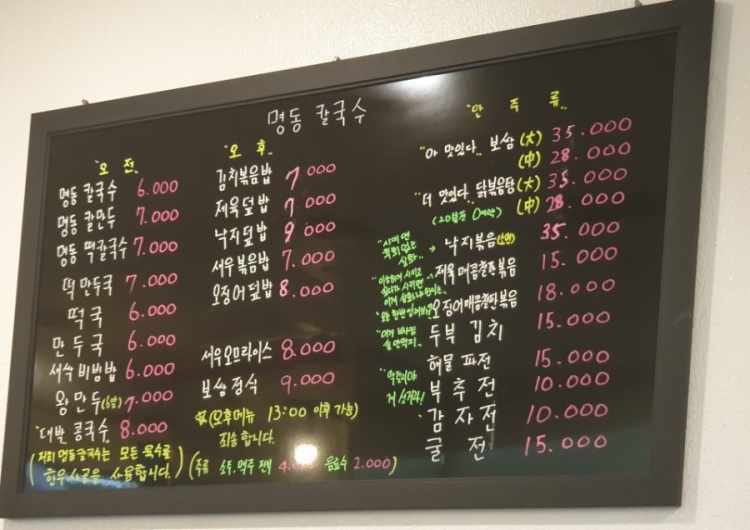 명동 칼국수
"오 전"
명동 칼국수 6.000
명동 칼만두 7.000
명동 떡칼국수 7.000
떡 만두국 7.000
떡 국 6.000
만 두 국 6.000
새싹 비빔밥 6.000
왕 만두 7.000
"대박 콩국수 8.000
(저희 명동칼국수는 모든 육수를
한우사골을 사용합니다.)
"오 후"
김치볶음밥 7.000
제육덮밥 7.000
낙지덮밥 9.000
새우볶음밥 7.000
오징어덮밥 8.000
새우오므라이스 8.000
보쌈정식 9.000
※(오후메뉴 13:00 이후 가능)
죄송합니다.
(주류 소주.맥주 전액 음료수 2.000)
"안 주 류"
"아 맛있다" 보쌈 (大) 35.000
(中) 28.000
"더 맛있다" 닭볶음탕 (大) 35.000
(20분전 예약) (中) 28.000
낙지볶음 35.000
제육매콤철판볶음 15.000
오징어매콤철판볶음 18.000
두부 김치 15.000
해물 파전 15.000
부 추 전 10.000
감 자 전 10.000
굴 전 15.000